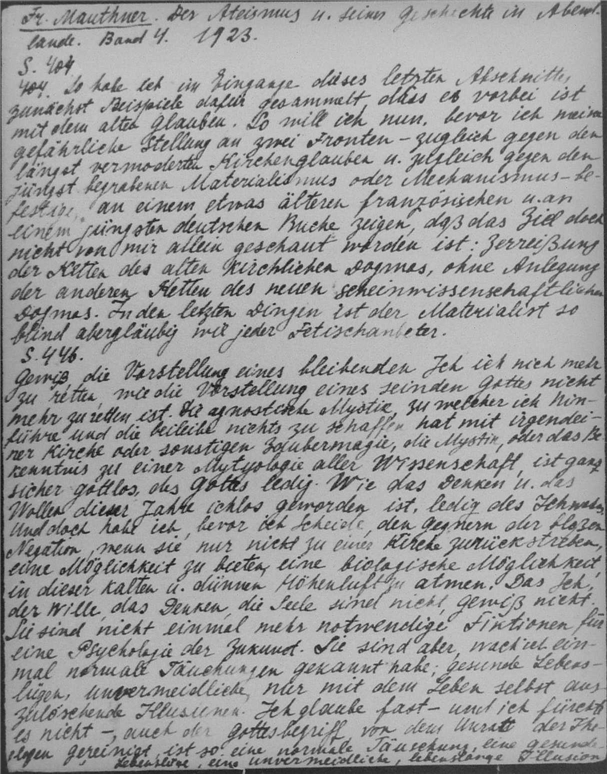 Fr. Mauthner. Der Ateismus u. seine Geschichte in Abend-
lande. Band 4. 1923.
S. 404
404. So habe ich im Eingange dieses letzten Abschnittes
zunächst Beispiele dafür gesammelt, dass es vorbei ist
mit dem alten Glauben. So will ich nun, bevor ich meine
gefährliche Stellung an zwei Fronten – zugleich gegen den
längst vermoderten Kirchenglauben u. zugleich gegen den
jüngst begrabenen Materialismus oder Mechanismus – be-
festige, an einem etwas älteren französischen u. an
einem jüngsten deutschen Buche zeigen, daß das Ziel doch
nicht von mir allein geschaut worden ist: Zerreißung
der Ketten des alten kirchlichen Dogmas, ohne Anlegung
der anderen Ketten des neuen scheinwissenschaftlichen
Dogmas. In den letzten Dingen ist der Materialist so
blind abergläubig wie jeder Fetischanbeter.
S. 446.
Gewiß, die Vorstellung eines bleibenden Ich ich nich mehr
zu retten, wie die Vorstellung eines seinden Gottes nicht
mehr zu retten ist. Die agnostische Mystik, zu welcher ich hin-
führe und die beileibe nichts zu schaffen hat mit irgendei-
ner Kirche oder sonstigen Zaubermagie, die Mystik, oder das Be-
kenntnis zu einer Mytyologie aller Wissenschaft, ist ganz
sicher gottlos, des Gottes ledig. Wie das Denken u. das
Wollen dieser Jahre ichlos geworden ist, ledig des
Und doch habe ich, bevor ich scheide, den gegnern der blozen
Negation, wenn sie nur nicht zu einer Kirche zurückstreben,
eine Möglichkeit zu bieten, eine biologische Möglichkeit,
in dieser kalten u. dünnen Höhenluft zu atmen. Das Ich,
der Wille, das Denken, die Seele sind nicht, gewiß nicht.
Sie sind nicht einmal mehr notwendige Fiktionen für
eine Psychologie der Zukunft. Sie sind aber, was ich ein-
mal normale Täuschungen genannt habe; gesunde Lebens-
lügen, unvermeidliche, nur mit dem Leben selbst aus-
zulöschende Illusionen. Ich glaube fast – und ich fürchte
es nicht –, auch der Gottesbegriff, von dem Unrate der Theo-
logen gereinigt, ist so eine normale Täuschung, eine gesunde
Lebenslüge, eine unvermeidliche, lebenslange Illusion